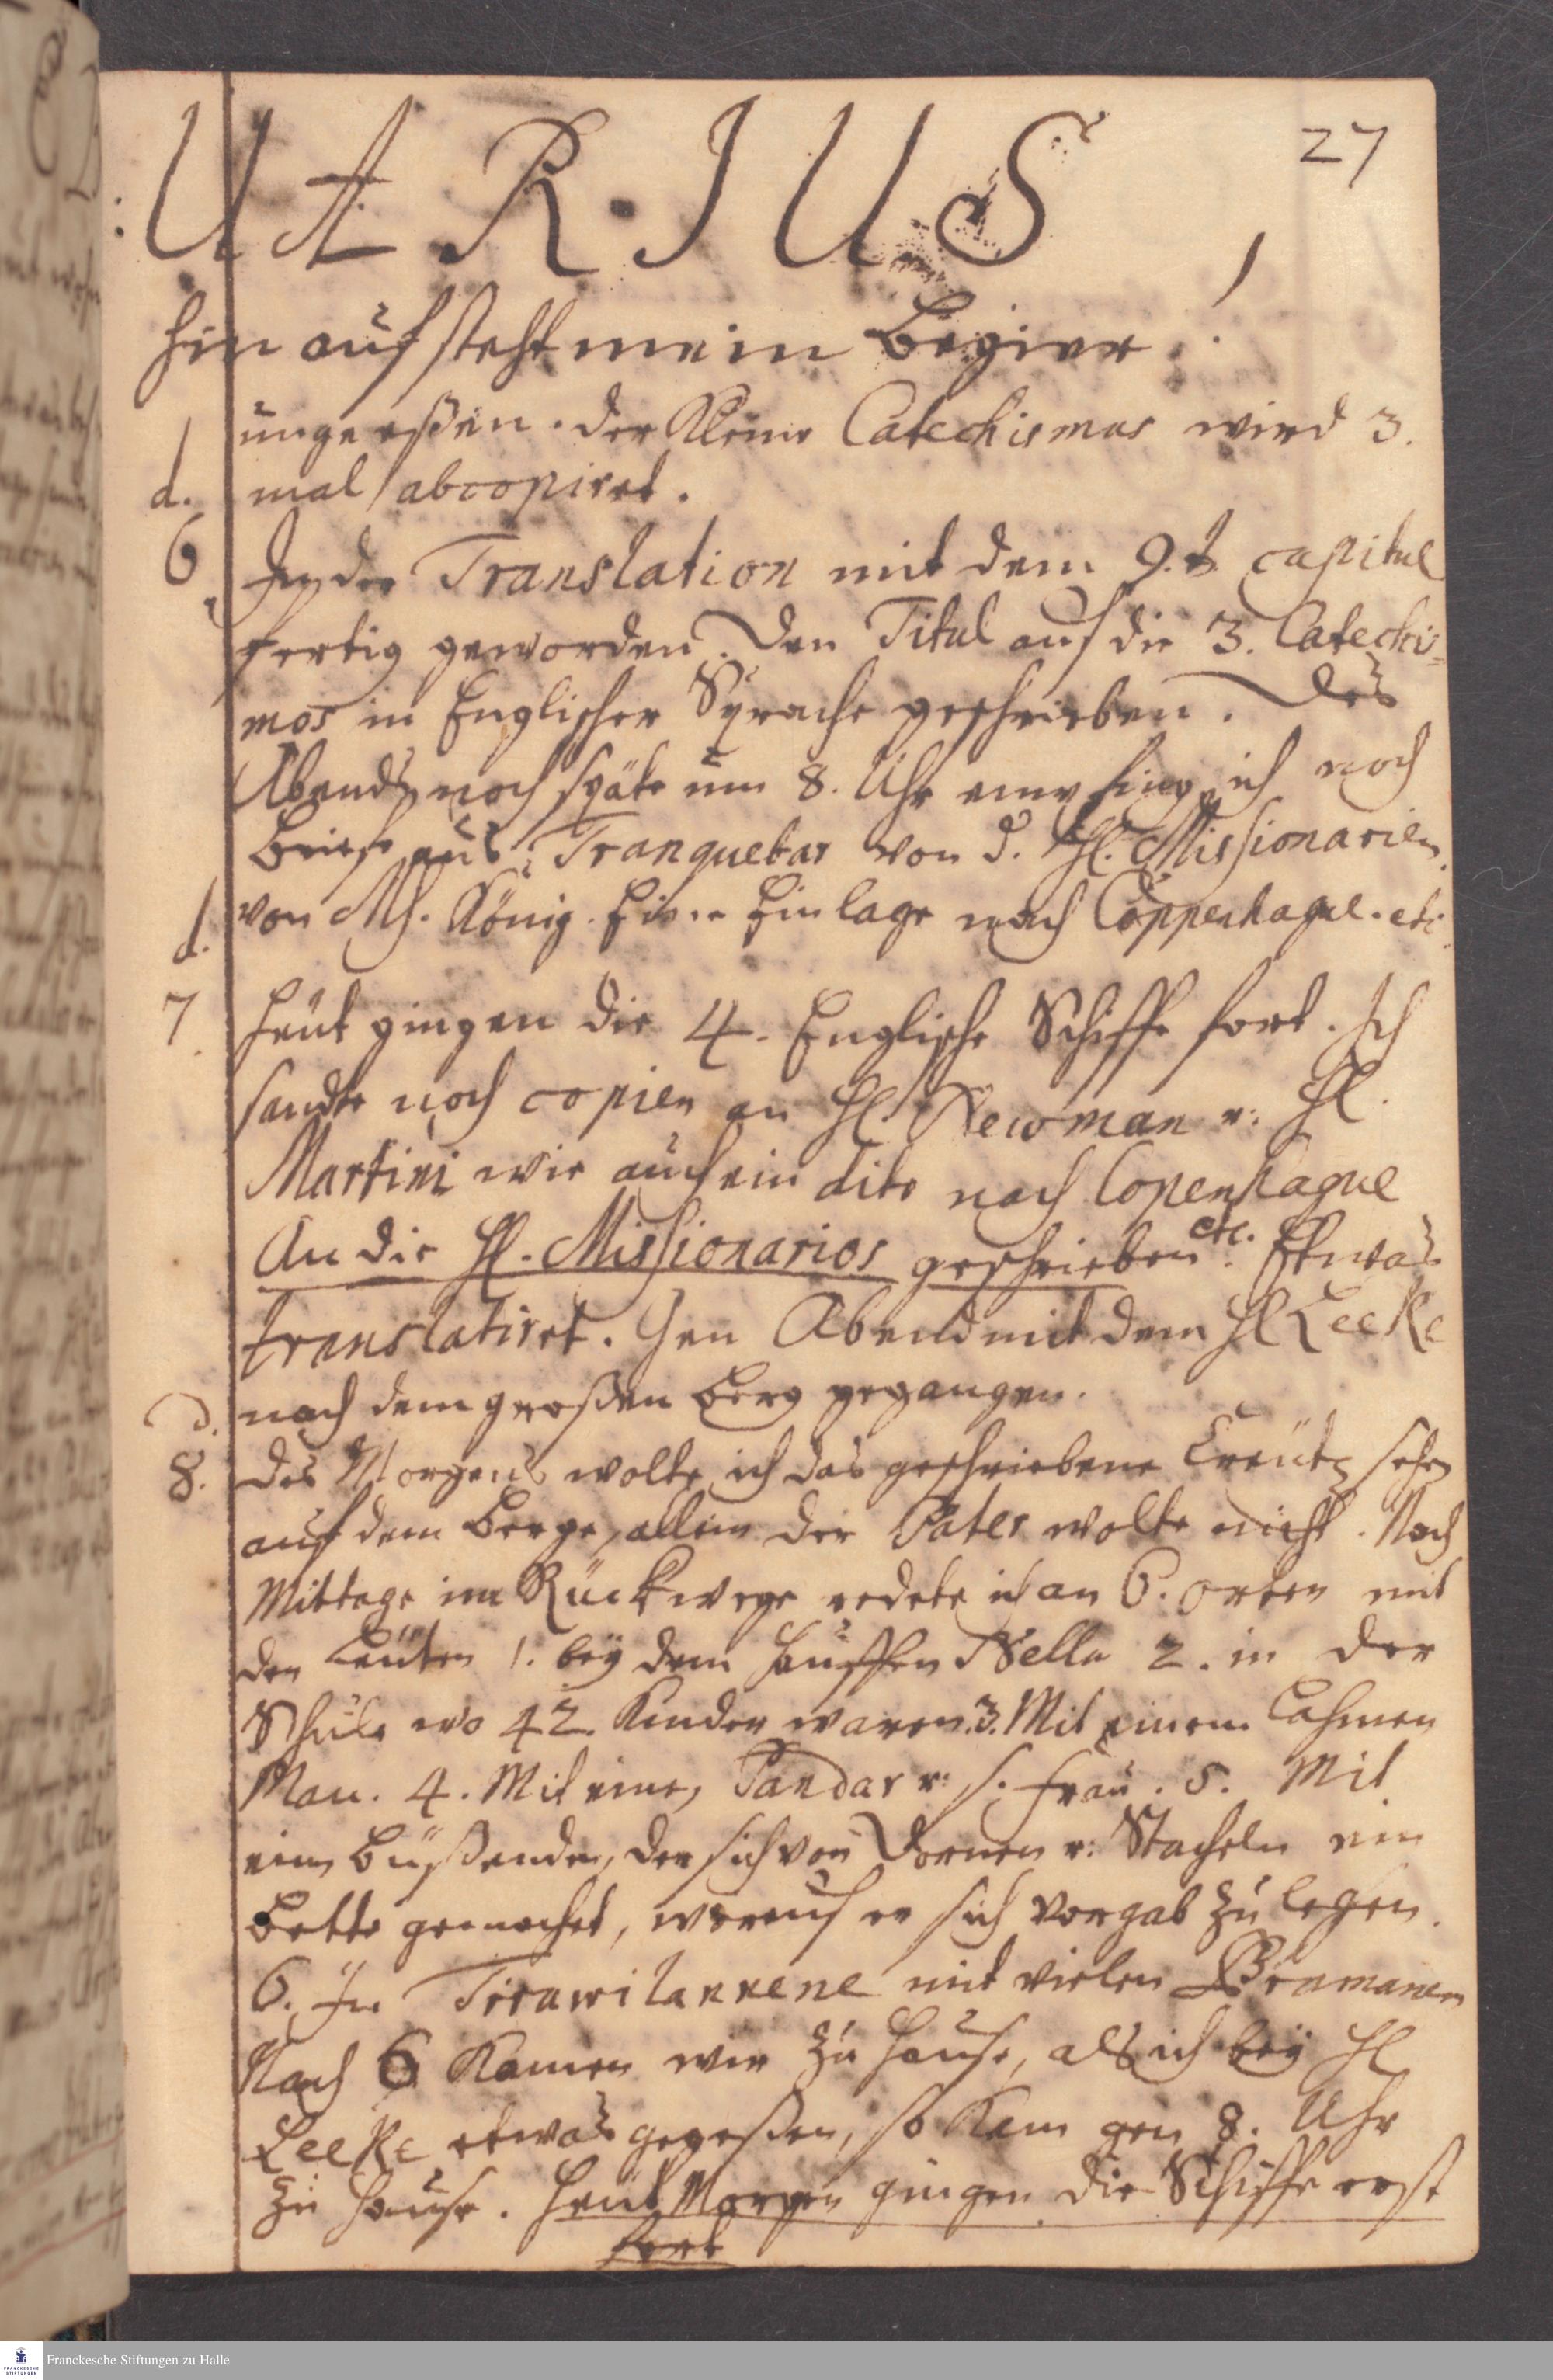 27
UARIUS
hin auf steht mein Begier!
ungeeßen. Der Kleine Catechismus wird 3.
d. mal abcopiret.
6 In der Translation mit dem 9.t capitul
fertig geworden. Den Titul auf die 3. Catechis-
mos in Englischer Sprache geschrieben. Des
Abends noch späte um 8. Uhr empfing ich noch
Briefe aus Tranquebar von d. H. Missionarien
von Mh. König. Eine Einlage nach Coppenhague. etc.
d.
7 Heut gingen die 4. Englische Schiffe fort. Ich
sandte noch copien an H. Newman u: H.
Martini wie auch ein dito nach Copenhague
An die H. Missionarios geschrieben etc. Etwas
translatiret. Gen Abend mit dem H Leeke
d. nach dem großen Berg gegangen.
8. Des Morgens wolte ich das geschriebene Creutz sehen
auf dem Berge, allein der Pater wolte nicht. Nach
Mittage im Rückwege redete ich an 6. orten mit
den Leuten 1. bey dem Hauffen Nella 2. in der
Schule wo 42 Kinder waren. 3. Mit einem Lahmen
Man. 4. Mit eine, Pandar u: s. Frau. 5. Mit
ein Büßenden, der sich von Dornen u: Stacheln ein
Bette gemachet, worauf er sich vorgab zu legen.
6. In mit vielen Bramanen
Nach 6 Kamen wir zu Hause, als ich bey H
Leeke etwas gegeßen, so Kam gen 8. Uhr
zu Hause. Heut Morgen gingen die Schiffe erst
fort
Franckesche Stiftungen zu Halle
FRANCKESCHE STIFTUNGEN